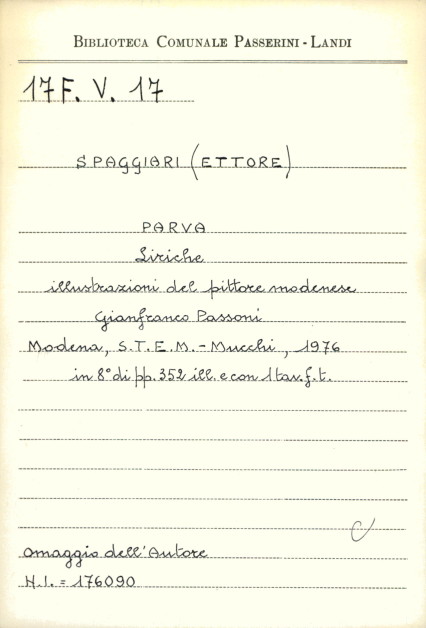 BIBLIOTECA COMUNALE PASSERINI - LANDI
17 F. V. 17
SPAGGIARI (ETTORE)
PARVA
Liriche
illustrazioni del pittore modenese
Gianfranco Passoni
Modena, S.T.E.M. - Mucchi, 1976
in 8° di pp. 352 ill. e con 1 tav. f. t.
C
omaggio dell'Autore
N.I. = 176090